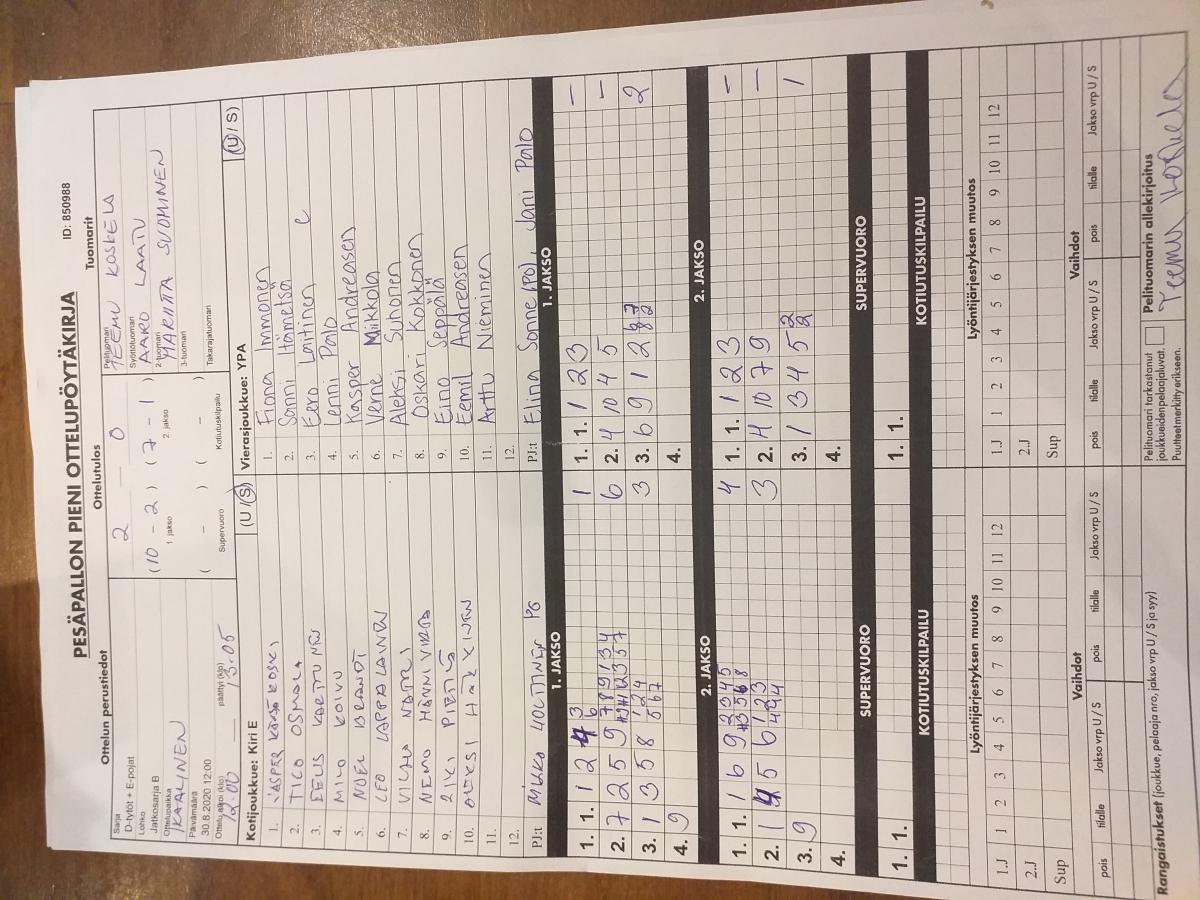 PESÄPALLON PIENI OTTELUPÖYTÄKIRJA
ID: 850988
Ottelun perustiedot
Ottelutulos
Tuomarit
Sarja
D-tytöt + E-pojat
Lohko
Jatkosarja B
Ottelupaikka
IKAALINEN
Päivämäärä
30.8.2020 12:00
Ottelu alkoi (klo)
12.00
päättyi (klo)
13.05
2 0
(10 - 2) (7 - 1)
1. jakso 2. jakso
( - ) ( - )
Supervuoro Kotiutuskilpailu
Pelituomari
TEEMU KOSKELA
Syöttötuomari
AARO LAATU
2-tuomari
MARITTA SUOMINEN
3-tuomari
Takarajatuomari
Kotijoukkue: Kiri E (U/S)
1. JASPER
2. TICO OSMALA
3. EELIS KARTUNEN
4. MILO KOIVU
5. NOEL BRANDT
6. LEO LAPPALAINEN
7.
8. NEMO HANNIVIRTA
9.
10.
11.
12.
PJ:t MIKKO HOLTINEN PG
Vierasjoukkue: YPA (U/S)
1. Fiona Immonen
2. Sanni Hämetsä
3. Eero Laitinen C
4. Lenni Palo
5. Kasper Andreasen
6. Verne Mikkola
7. Aleksi Suhonen
8. Oskari Kokkonen
9. Eino Seppälä
10. Eemil Andreasen
11. Arttu Nieminen
12.
PJ:t Elina Sonne (PO), Jani Palo
1. JAKSO
1. 1. 1 2 4 3 6 1
2. 7 2 5 9 6
3. 1 3 5 8 1 2 4 5 6 7 3
4. 9
1. JAKSO
1. 1. 1 2 3 –
2. 4 10 4 5 –
3. 6 9 1 2 2
4.
2. JAKSO
1. 1. 1 6 9 2 3 4 5 4
2. 1 4 5 6 1 2 3 3
3. 9
4.
2. JAKSO
1. 1. 1 2 3 –
2. 4 10 7 9 –
3. 1 3 4 5 2 2 1
4.
SUPERVUORO
1. 1.
SUPERVUORO
1. 1.
KOTIUTUSKILPAILU
KOTIUTUSKILPAILU
Lyöntijärjestyksen muutos
1.J 1 2 3 4 5 6 7 8 9 10 11 12
2.J
Sup
Lyöntijärjestyksen muutos
1.J 1 2 3 4 5 6 7 8 9 10 11 12
2.J
Sup
Vaihdot
pois tilalle Jakso vrp U / S pois tilalle Jakso vrp U / S
Vaihdot
pois tilalle Jakso vrp U / S pois tilalle Jakso vrp U / S
Rangaistukset (joukkue, pelaaja nro, jakso vrp U / S ja syy)
Pelituomari tarkastanut
joukkueidenpelaajaluvat.
Puutteet merkitty erikseen.
Pelituomarin allekirjoitus
Teemu Koskela